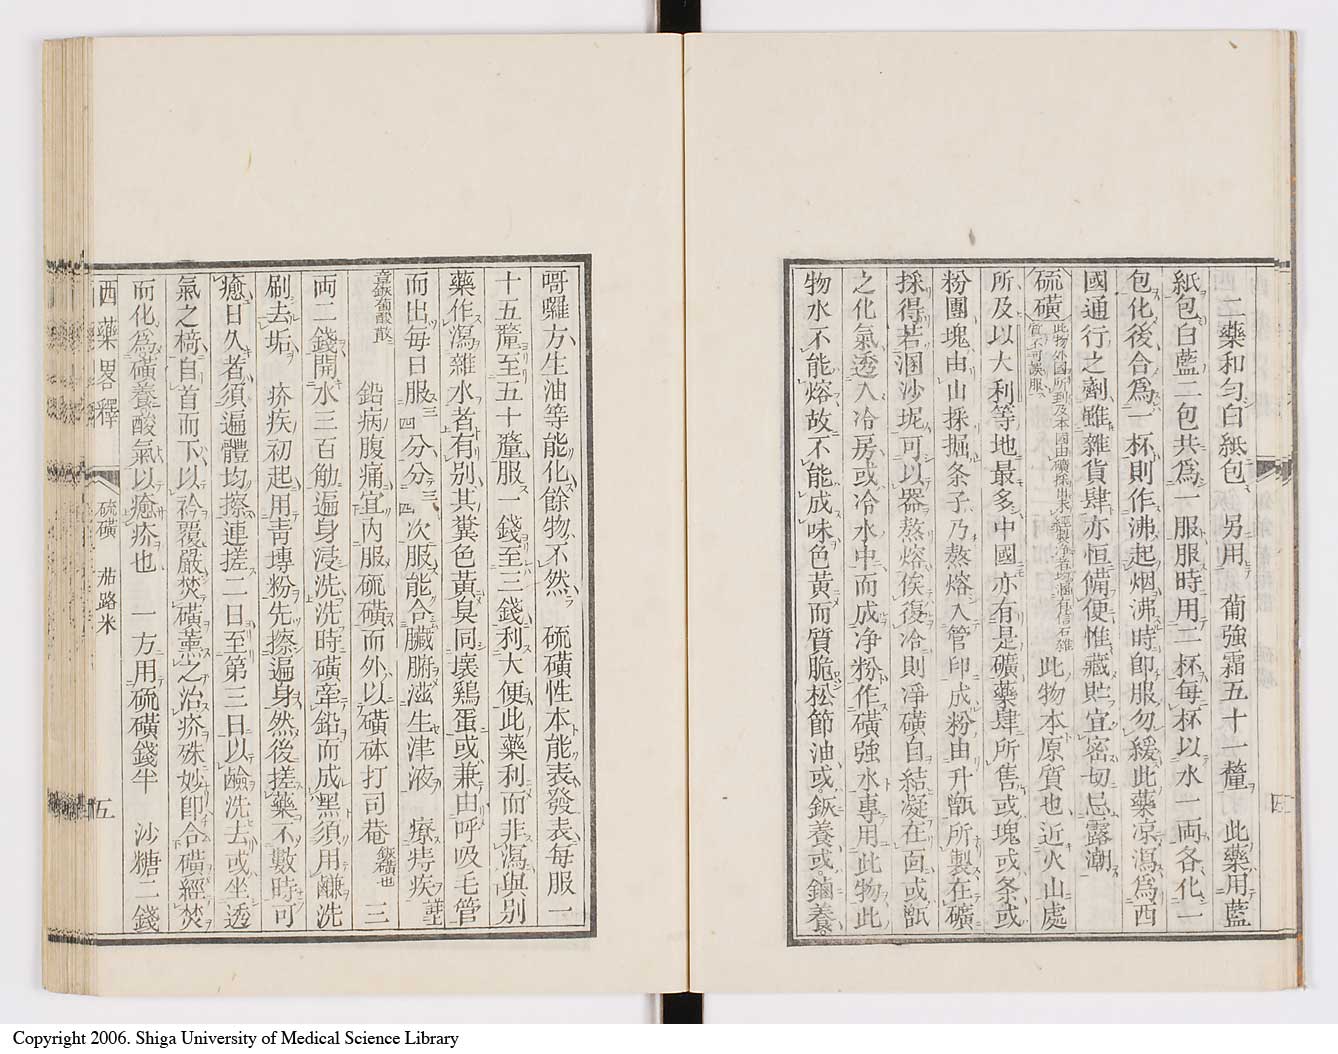 二藥和勻白紙包 另用 蔔強霜五十一釐 此藥用藍
紙包白藍二包共爲一服服時用二杯每杯以水一両各化一
包化後合爲一杯則作沸起烟沸時即服勿緩此藥凉瀉爲西
國通行之劑雖雜貨肆亦恒備便惟藏貯宜密切忌露潮
硫磺 此物外國所到及本國由礦採出未經製淨者均溷有信石雜質不可誤服 此物本原質也近火山處
所及以大利等地最多中國亦有是礦藥肆所售或塊或条或
粉團塊由山採掘条子乃熬熔入管印成粉由升甑所製在礦
採得若溷沙坭可以器熬熔俟復冷則凈磺自結凝在面或甑
之化氣透入冷房或冷水中而成净粉作磺強水專用此物此
物水不能熔故不能成味色黃而質脆松節油或鈊養或鏀養
哥囉方生油等能化餘物不然 硫磺性本能表發表每服一
十五釐至五十釐服一錢至三錢利大便此藥利而非瀉與別
藥作瀉雜水者有別其糞色黃臭同壞鷄蛋或兼由呼吸毛管
而出每日服三四分分三四次服能合臟腑滋生津液 療痔疾
鉛病腹痛宜內服硫磺而外以磺砵打司菴 三
両二錢開水三百觔遍身浸洗洗時磺牽鉛而成黑須用鹻洗
刷去垢 疥疾初起用靑磚粉先擦遍身然後搓藥不數時可
癒日久者須遍體均擦連搓二日至第三日以鹼洗去或坐透
氣之椅自首而下以袊覆嚴焚磺薰之治疥殊妙即合磺經焚
而化爲磺養酸氣以癒疥也 一方用硫磺錢半 沙糖二錢
西藥畧釋
硫磺 𦯉路米
五
Copyright 2006. Shiga University of Medical Science Library